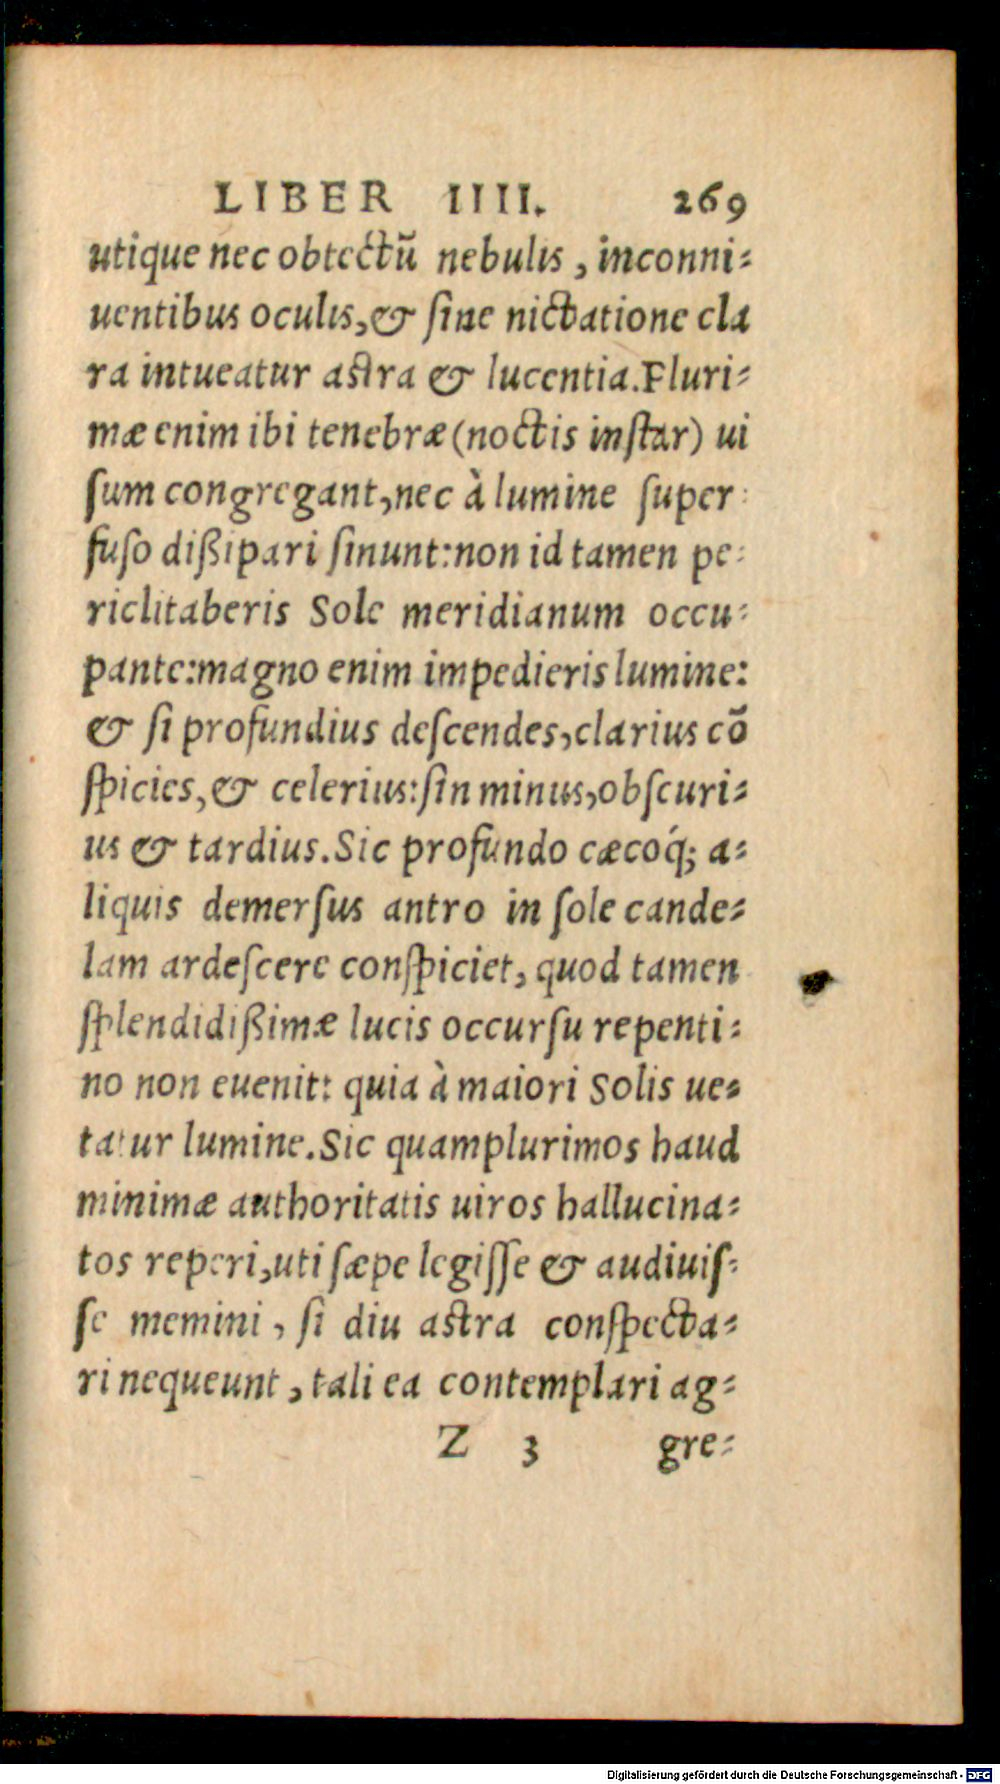 LIBER IIII. 269
utique nec obtectũ nebulis, inconni=
uentibus oculis, & ſine nictatione cla
ra intueatur aſtra & lucentia. Pluri=
mæ enim ibi tenebræ (noctis inſtar) ui
ſum congregant, nec à lumine super=
fuſo dißipari ſinunt: non id tamen pe=
riclitaberis Sole meridianum occu=
pante: magno enim impedieris lumine:
& ſi profundius deſcendes, clarius cõ
ſpicies, & celerius: ſin minus, obſcuri=
us & tardius. Sic profundo cæcoq́; a=
liquis demerſus antro in ſole cande=
lam ardeſcere conſpiciet, quod tamen
ſplendidißimæ lucis occurſu repenti=
no non euenit: quia à maiori Solis ue=
tatur lumine. Sic quamplurimos haud
minimæ authoritatis uiros hallucina=
tos reperi, uti ſæpe legiſſe & audiuiſ=
ſe memini, ſi diu aſtra conſpecta=
ri nequeunt, tali ea contemplari ag=
Z 3 gre=
Digitalisierung gefördert durch die Deutsche Forschungsgemeinschaft - DFG